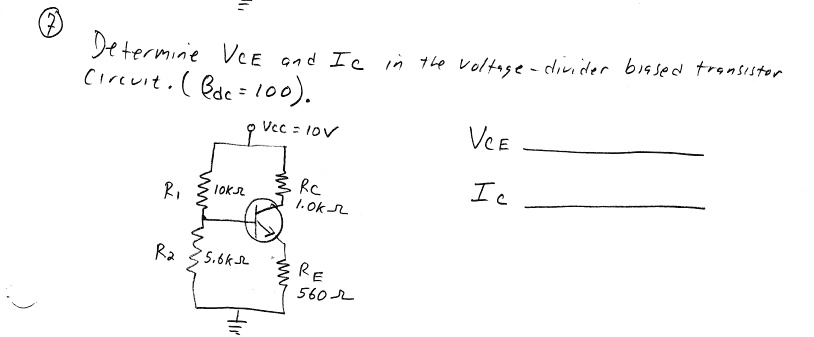 7
Determine VCE and Ic in the voltage-divider biased transistor
Circuit. (βdc = 100).
Vcc = 10V
VCE
R1 10KΩ Rc
1.0KΩ
Ic
R2 5.6KΩ RE
560Ω